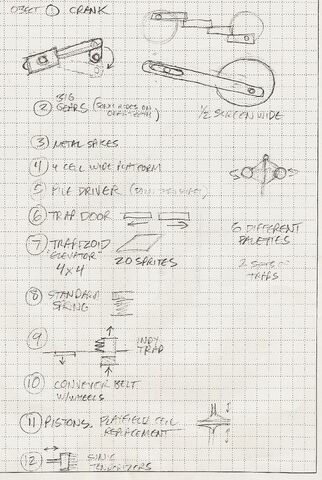 OBJECT 1 CRANK
2 BIG GEARS (SONIC RIDES ON
1/2 SCREEN WIDE
3 METAL SPIKES
4 4 CELL WIDE PLATFORM
5 PILE DRIVER
6 TRAP DOOR
6 DIFFERENT
PALETTES
7 TRAPIZOID
ELEVATOR
4X4
20 SPRITES
TRAPS
8 STANDARD
SPRING
9 INDY
TRAP
10 CONVEYER BELT
W/WHEELS
11 PISTONS. PLAYFIELD CELL
REPLACEMENT
12 SONIC
TENDERIZERS